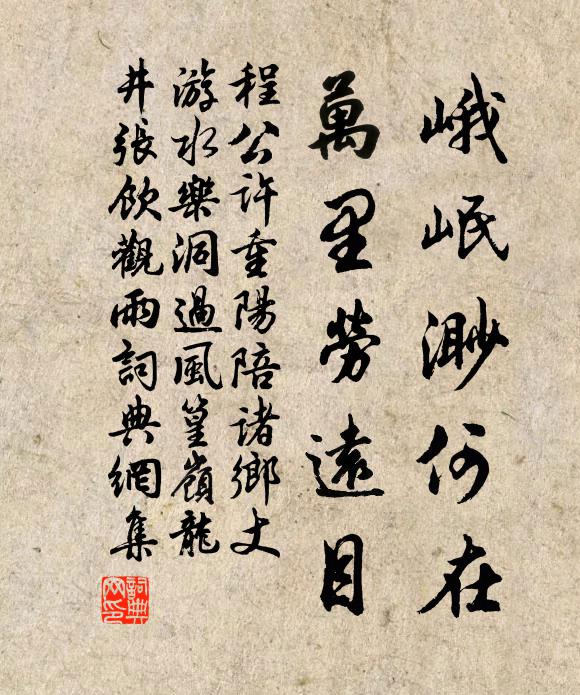 峨岷渺何在
萬里勞遠目
程公許重陽陪諸鄉丈
游水樂洞過風篁嶺龍
井張飲觀雨詞典網集